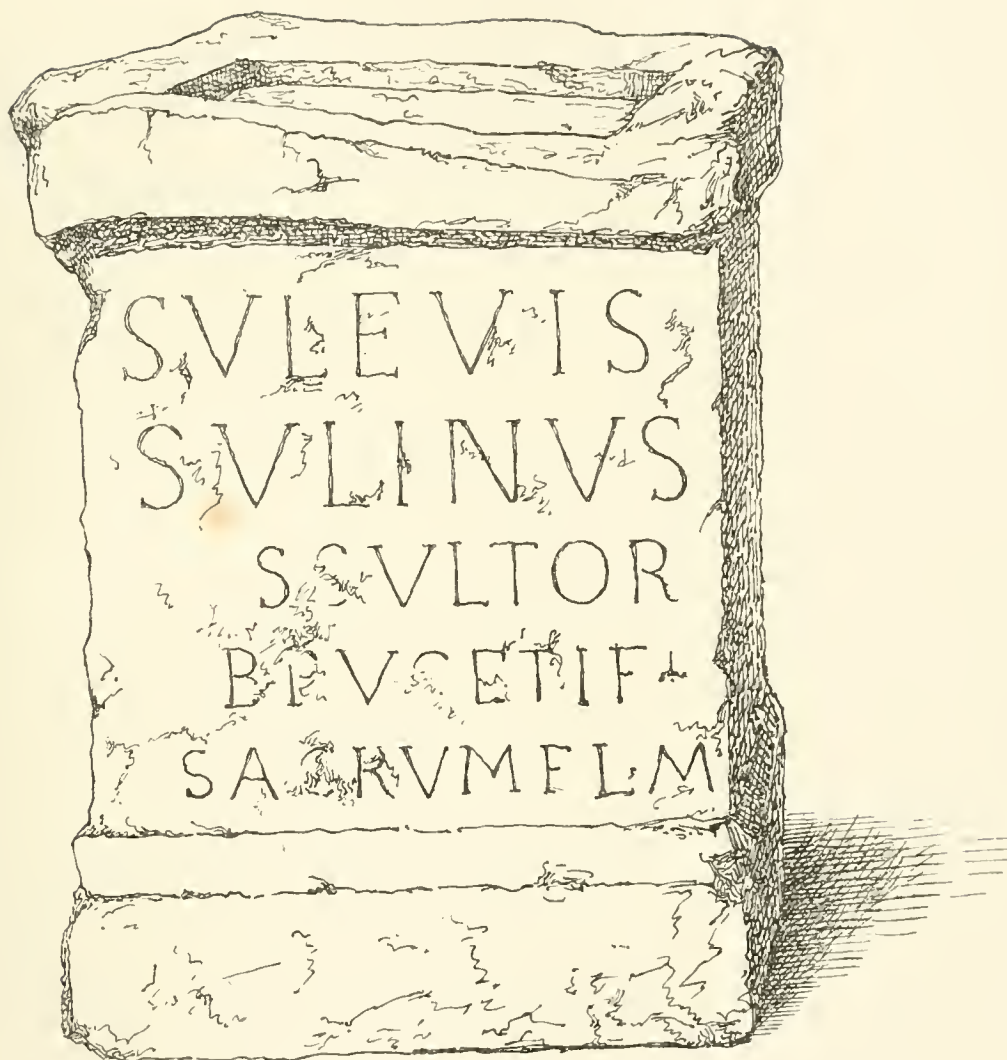 SVLEVIS
SVLINVS
SCVLTOR
BRVCETI F
SACRVM F L M